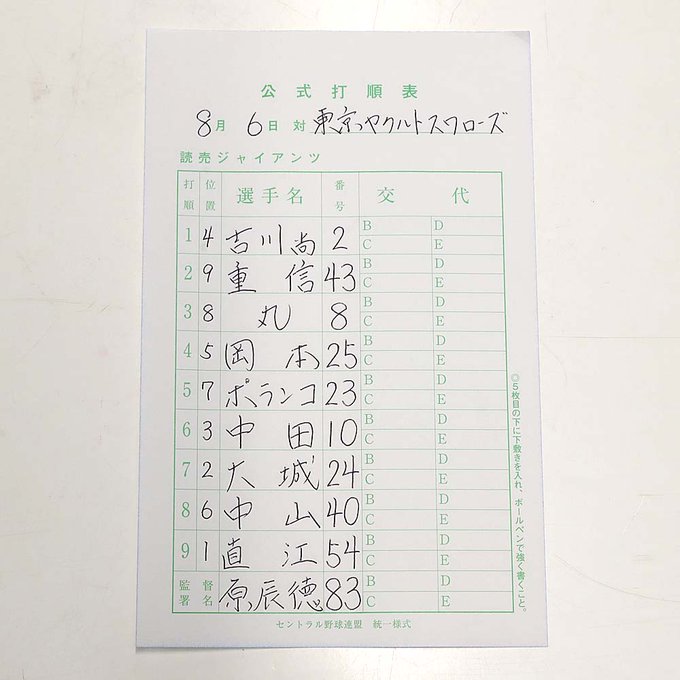 公式打順表
8月 6日 対 東京ヤクルトスワローズ
読売ジャイアンツ
打順 位置 選手名 番号 交代
1 4 吉川尚 2 B D C E
2 9 重信 43 B D C E
3 8 丸 8 B D C E
4 5 岡本 25 B D C E
5 7 ポランコ 23 B D C E
6 3 中田 10 B D C E
7 2 大城 24 B D C E
8 6 中山 40 B D C E
9 1 直江 54 B D C E
監督署名 原辰徳 83 B D C E
◎5枚目の下に下敷きを入れ、ボールペンで強く書くこと。
セントラル野球連盟 統一様式